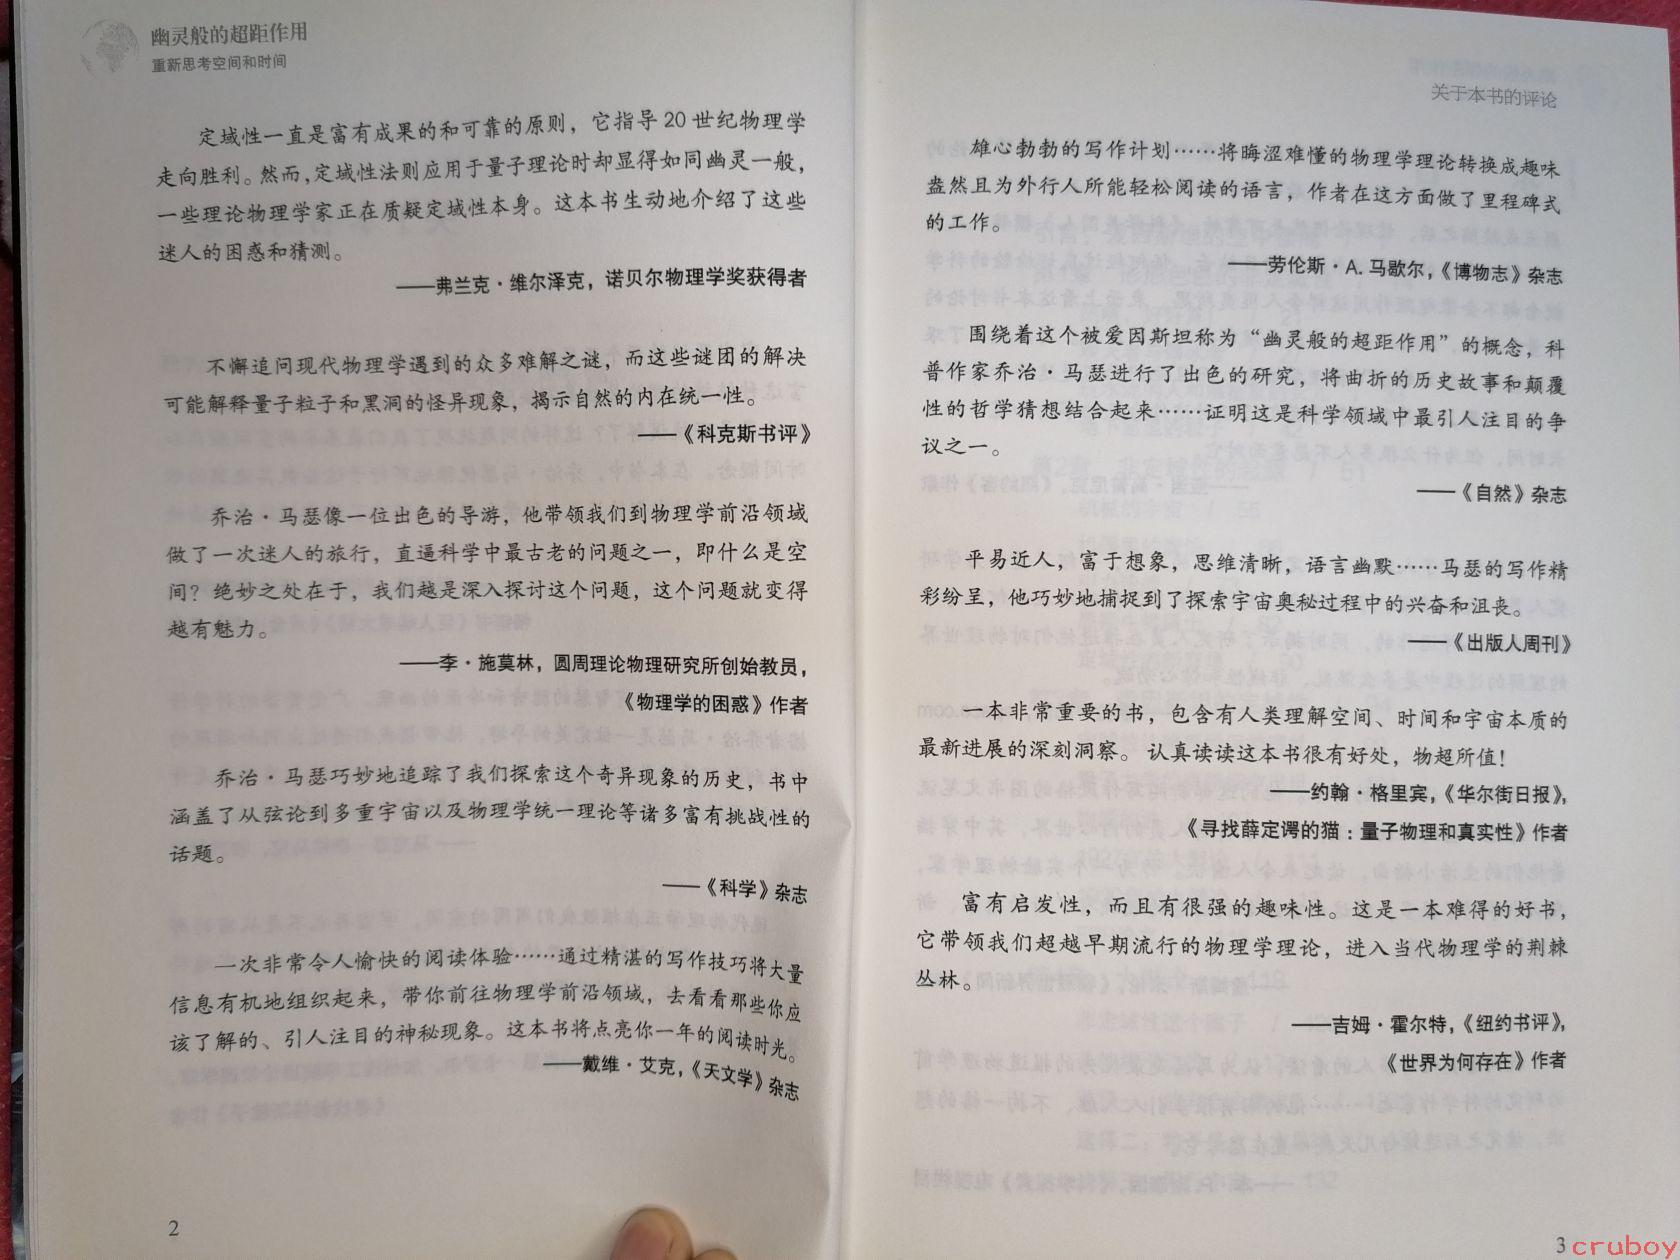 幽灵般的超距作用
重新思考空间和时间
定域性一直是富有成果的和可靠的原则，它指导20世纪物理学
走向胜利。然而，定域性法则应用于量子理论时却显得如同幽灵一般，
一些理论物理学家正在质疑定域性本身。这本书生动地介绍了这些
迷人的困惑和猜测。
——弗兰克·维尔泽克，诺贝尔物理学奖获得者
不懈追问现代物理学遇到的众多难解之谜，而这些谜团的解决
可能解释量子粒子和黑洞的怪异现象，揭示自然的内在统一性。
——《科克斯书评》
乔治·马瑟像一位出色的导游，他带领我们到物理学前沿领域
做了一次迷人的旅行，直逼科学中最古老的问题之一，即什么是空
间？绝妙之处在于，我们越是深入探讨这个问题，这个问题就变得
越有魅力。
——李·施莫林，圆周理论物理研究所创始教员，
《物理学的困惑》作者
乔治·马瑟巧妙地追踪了我们探索这个奇异现象的历史，书中
涵盖了从弦论到多重宇宙以及物理学统一理论等诸多富有挑战性的
话题。
——《科学》杂志
一次非常令人愉快的阅读体验……通过精湛的写作技巧将大量
信息有机地组织起来，带你前往物理学前沿领域，去看看那些你应
该了解的、引人注目的神秘现象。这本书将点亮你一年的阅读时光。
——戴维·艾克，《天文学》杂志
2
关于本书的评论
雄心勃勃的写作计划……将晦涩难懂的物理学理论转换成趣味
盎然且为外行人所能轻松阅读的语言，作者在这方面做了里程碑式
的工作。
——劳伦斯·A. 马歇尔，《博物志》杂志
围绕着这个被爱因斯坦称为“幽灵般的超距作用”的概念，科
普作家乔治·马瑟进行了出色的研究，将曲折的历史故事和颠覆
性的哲学猜想结合起来……证明这是科学领域中最引人注目的争
议之一。
——《自然》杂志
平易近人，富于想象，思维清晰，语言幽默……马瑟的写作精
彩纷呈，他巧妙地捕捉到了探索宇宙奥秘过程中的兴奋和沮丧。
——《出版人周刊》
一本非常重要的书，包含有人类理解空间、时间和宇宙本质的
最新进展的深刻洞察。认真读读这本书很有好处，物超所值！
——约翰·格里宾，《华尔街日报》，
《寻找薛定谔的猫：量子物理和真实性》作者
富有启发性，而且有很强的趣味性。这是一本难得的好书，
它带领我们超越早期流行的物理学理论，进入当代物理学的荆棘
丛林。
——吉姆·霍尔特，《纽约书评》，
《世界为何存在》作者
3
cruboy